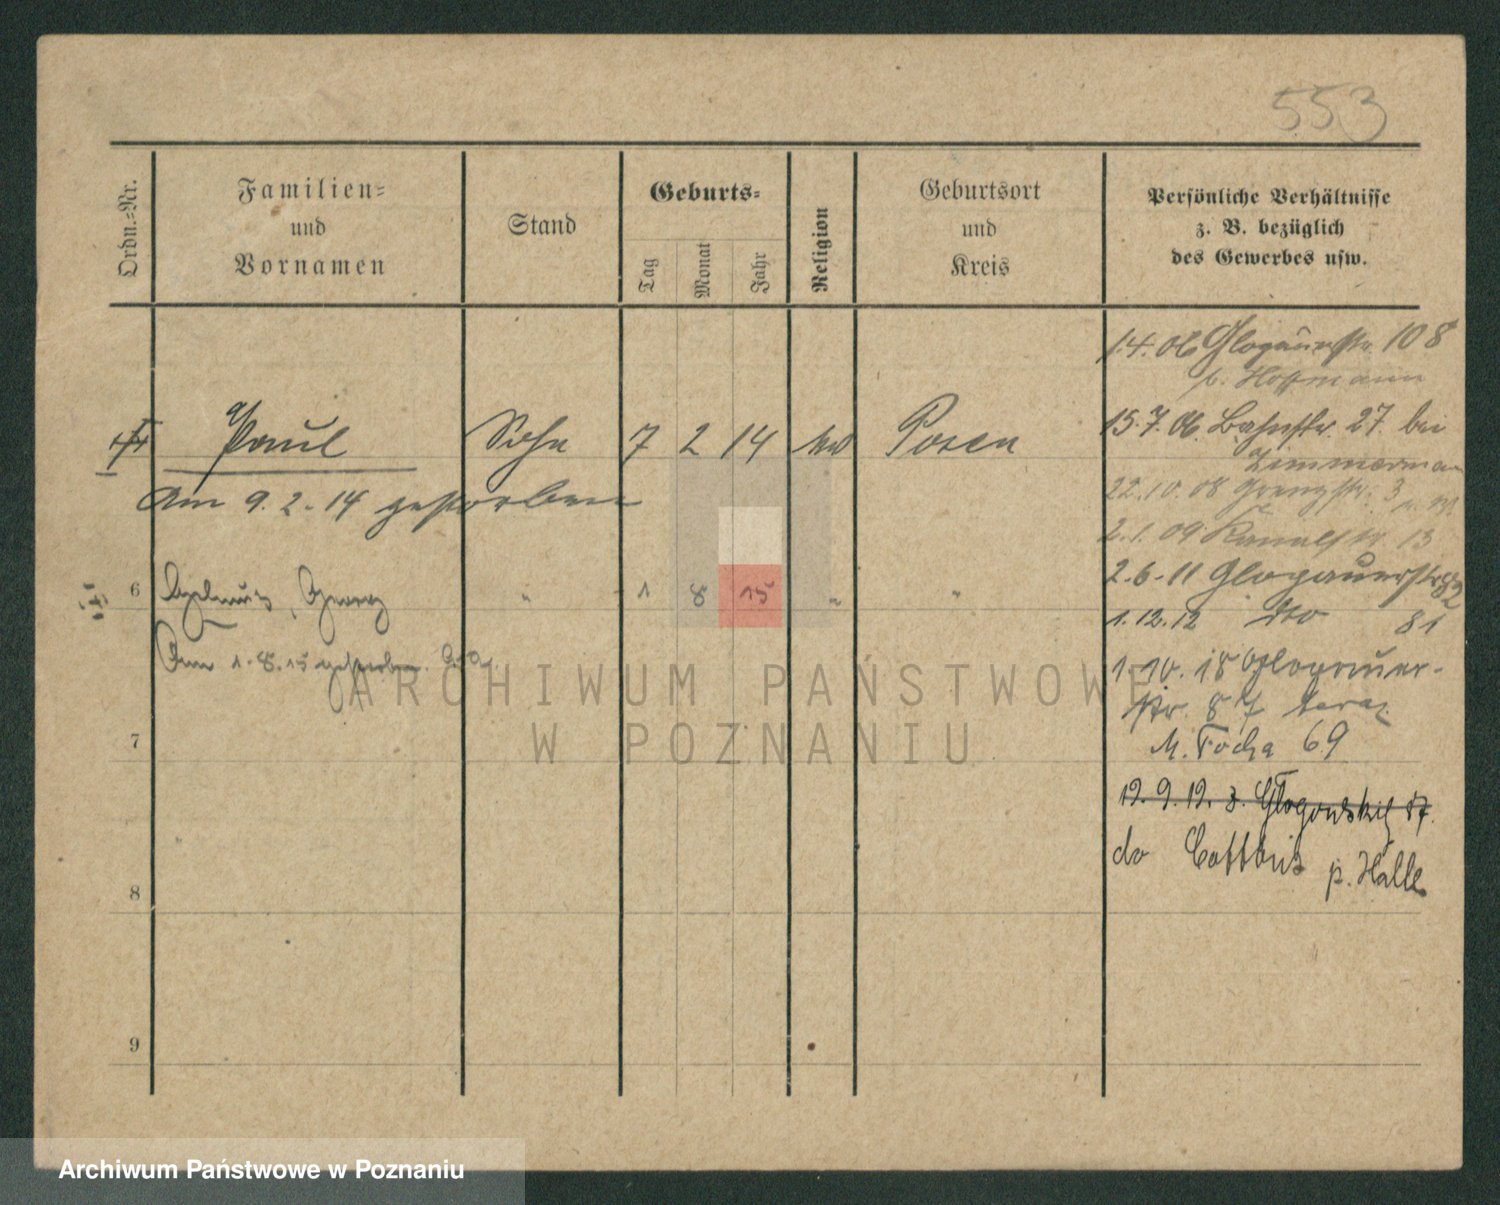 553
Ordn.-Nr.
Familien-
und
Vornamen
Stand
Geburts-
Tag
Monat
Jahr
Religion
Geburtsort
und
Kreis
Persönliche Verhältnisse
z. B. bezüglich
des Gewerbes usw.
1.4.06 Glogauerstr. 108
b. Hoffmann
Paul Sohn 7 2 14 Posen
15.7.06 Bahnstr. 27 bei
Zimmermann
Am 9.2.14 gestorben
22.10.08 Grenzstr. 3
2.1.09 Kanalstr. 13
6 Georg " 1 8 15 " "
2.6.11 Glogauerstr. 82
1.12.12 dto 81
Am 1.8.15 gestorben.
1.10.18 Glogauer-
str. 87 teraz
7
M. Focha 69
19.9.19. z. Glogowskiej 87.
do Cottbus p. Halle
8
9
ARCHIWUM PAŃSTWOWE
W POZNANIU
Archiwum Państwowe w Poznaniu